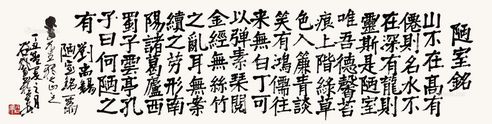 陋室銘
山不在高有
僊則名水不
在深有龍則
靈斯是陋室
唯吾德馨苔
痕上階綠草
色入簾青談
笑有鴻儒往
來無白丁可
以彈素琴閱
金經無絲竹
之亂耳無案
牘之勞形南
陽諸葛廬西
蜀子雲亭孔
子曰何陋之
有 劉禹錫
陋室銘